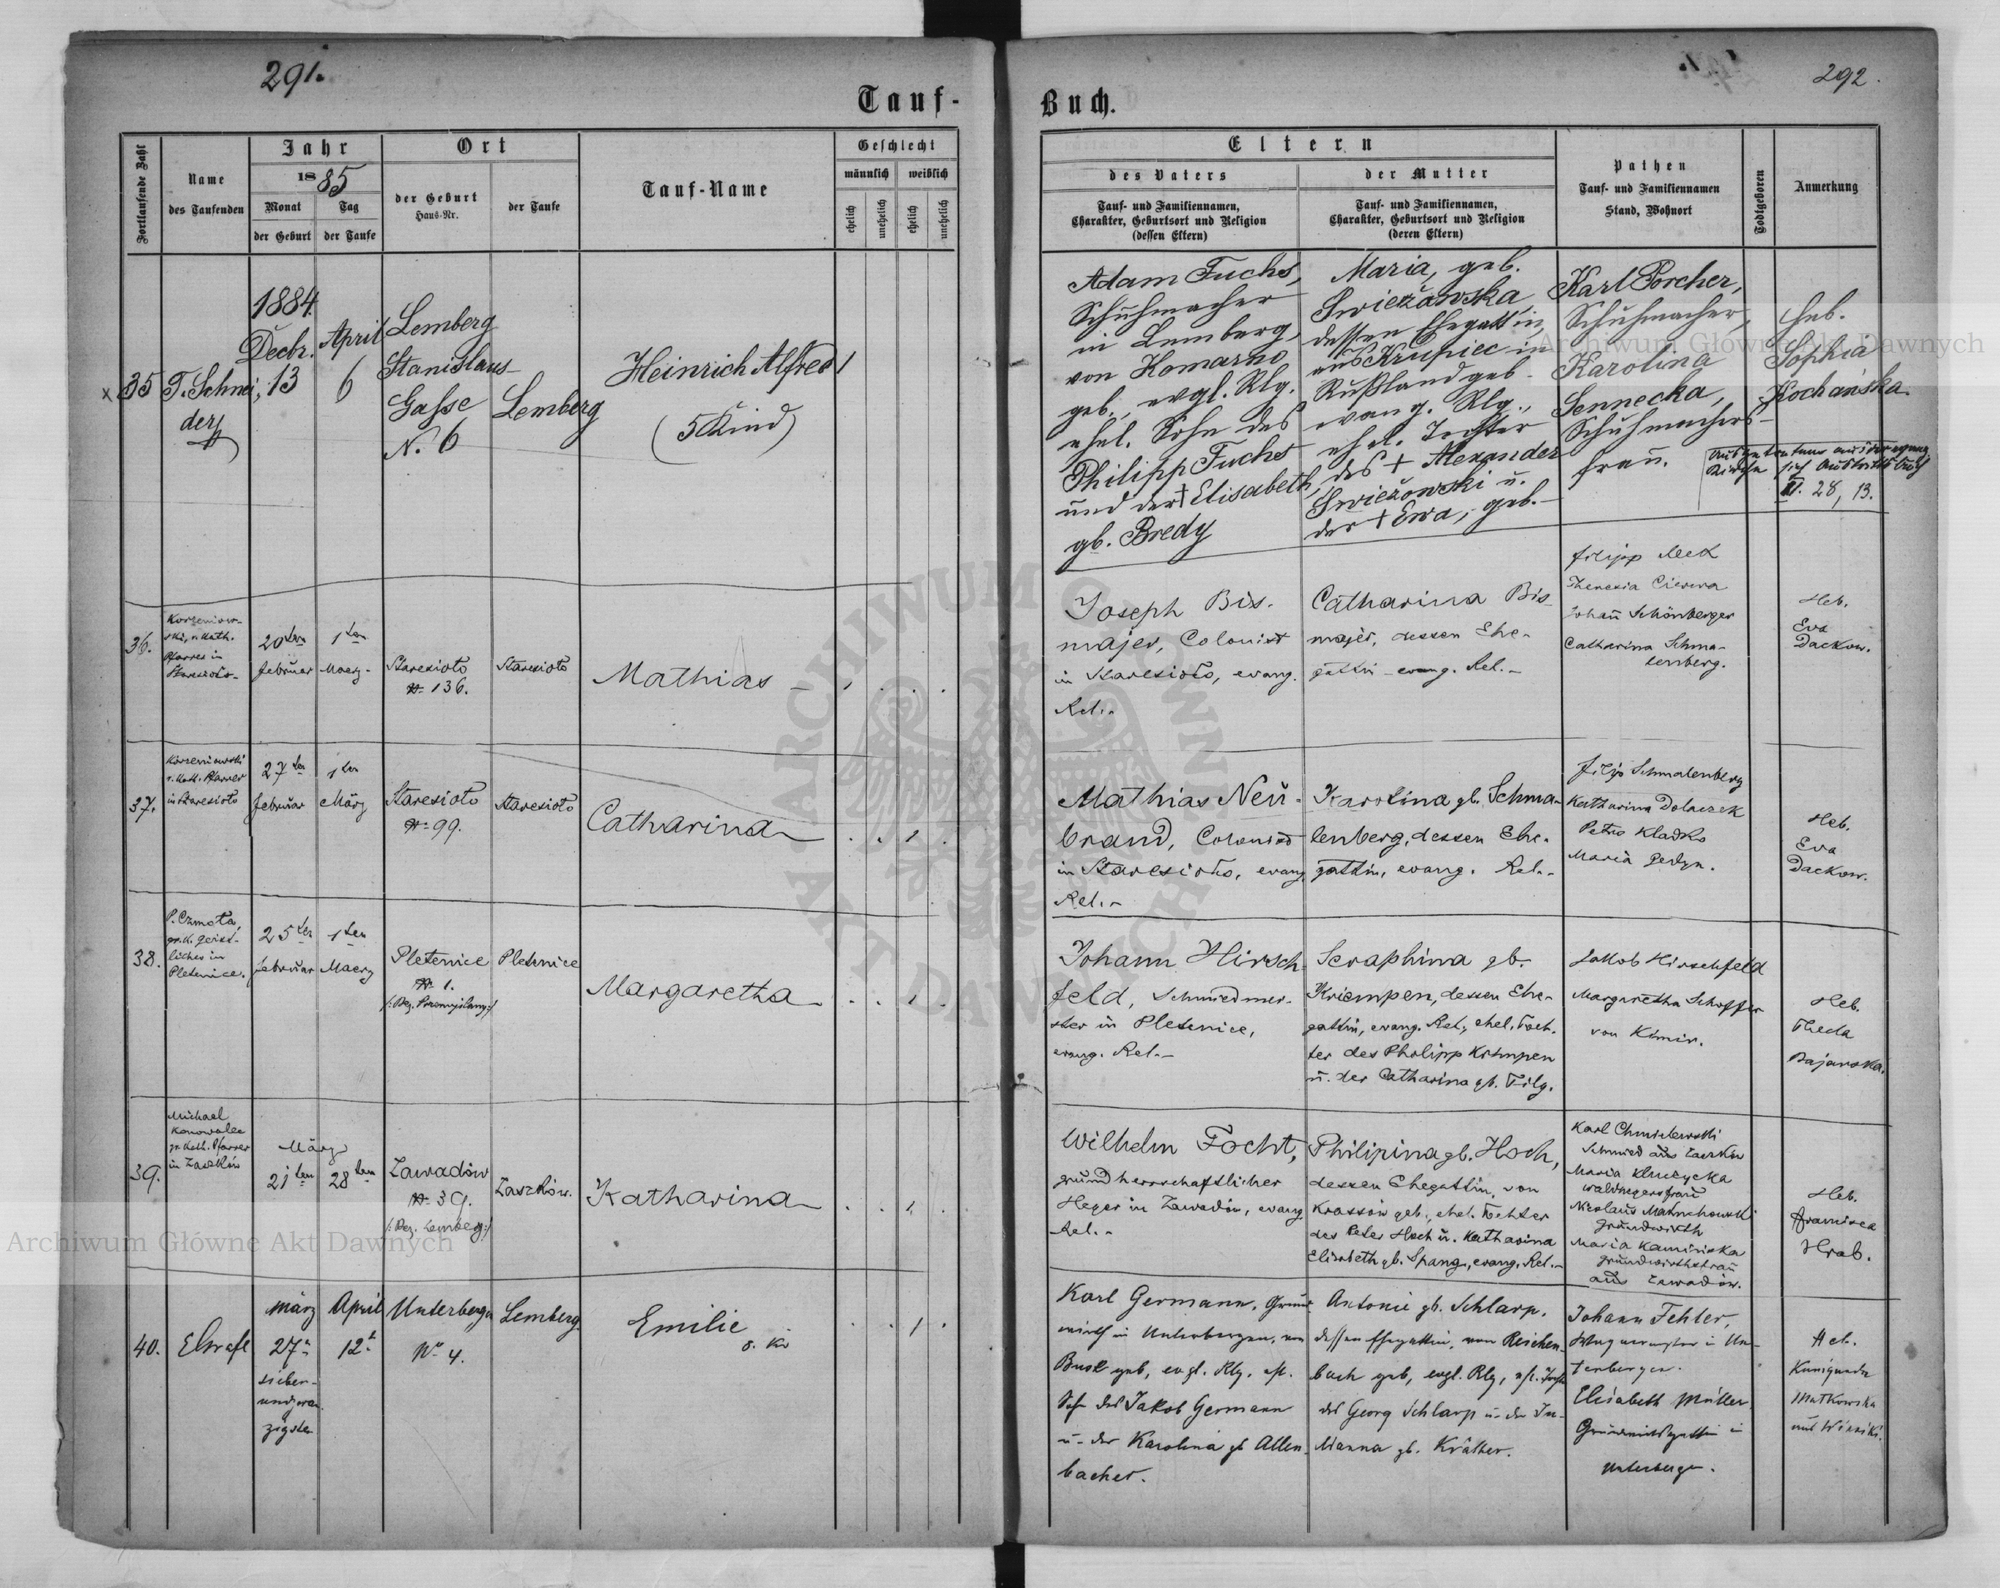 291.
292.
Tauf-
Buch.
Fortlaufende Zahl
Name
des Taufenden
Jahr
1885
Monat
der Geburt
Tag
der Taufe
Ort
der Geburt
Haus-Nr.
der Taufe
Tauf-Name
Geschlecht
männlich
weiblich
ehelich
unehelich
ehelich
unehelich
Eltern
des Vaters
Tauf- und Familiennamen,
Charakter, Geburtsort und Religion
(dessen Eltern)
der Mutter
Tauf- und Familiennamen,
Charakter, Geburtsort und Religion
(deren Eltern)
Pathen
Tauf- und Familiennamen
Stand, Wohnort
Todtgeboren
Anmerkung
x 35
T. Schnei-
der
1884.
Decbr.
13
April
6
Lemberg
Stanislaus-
Gasse
N. 6
Lemberg
Heinrich Alfred
(5 Kind)
1
Adam Fuchs,
Schuhmacher
in Lemberg,
von Komarno
geb., evgl. Rlg.
ehel. Sohn des
Philipp Fuchs
und der † Elisabeth,
gb. Bredy
Maria, geb.
Swieżowska
dessen Ehegattin,
aus Krupiec in
Rußland geb.
evang. Rlg.,
ehel. Tochter
des † Alexander
Swieżowski u.
der † Ewa, geb. -
Karl Porcher,
Schuhmacher,
Karolina
Sennecka,
Schuhmachers-
frau.
Heb.
Sophia
Kochańska
28, 13.
36.
Korzeniow-
ski, r. kath.
Pfarrer in
Staresioło
20ten
Februar
1ten
Maerz
Staresioło
N 136.
Staresioło
Mathias
Joseph Bis-
majer, Colonist
in Staresioło, evang.
Rel.
Catharina Bis-
majer, dessen Ehe-
gattin - evang. Rel.
Filipp
Theresia
Johañ Schönberger
Catharina Schma-
lenberg.
Heb.
Eva
Dackow.
37.
Korzeniowski
r. kath. Pfarrer
in Staresioło
27ten
Februar
1ten
März
Staresioło
N 99.
Staresioło
Catharina
1
Mathias Neu-
brand, Colonist
in Staresioło, evang.
Rel.
Karolina gb. Schma-
lenberg, dessen Ehe-
gattin, evang. Rel.
Filip Schmalenberg
Katharina Dolaczek
Petro Kladko
Maria
Heb.
Eva
Dackow.
38.
P. Czmota,
gr. k. Geist-
licher in
Pletenice.
25ten
Februar
1ten
Maerz
Pletenice
N 1.
/: Bez. Przemyślany :/
Pletenice
Margaretha
1
Johann Hirsch-
feld, Schmiedmei-
ster in Pletenice,
evang. Rel.
Seraphina gb.
Kriempen, dessen Ehe-
gattin, evang. Rel., ehel. Toch-
ter des Philipp Krimpen
u. der Catharina gb. Filg.
Jakob Hirschfeld
Margaretha Schoffer
von Kimir.
Heb.
Thecla
Bajarska.
39.
Michael
Konowalec
gr. kath. Pfarrer
in Zaszków
März
21ten
28ten
Zawadów
N 39.
/: Bez. Lemberg :/
Zaszków.
Katharina
1
Wilhelm Focht,
grundherrschaftlicher
Heger in Zawadów, evang.
Rel.
Philipina gb. Hoch,
dessen Ehegattin, von
Krassów geb., ehel. Tochter
des Peter Hoch u. Katharina
Elisabeth gb. Spang, evang. Rel.
Karl Chmielewski
Schmied aus Zaszków
Maria Kluczycka
Waldhegersfrau
Nicolaus
Grundwirth
Maria Kamińska
Grundwirthsfrau
aus Zawadów.
Heb.
Francisca
Hrab.
40.
März
27
sieben-
undzwan-
zigste
April
12
Unterbergen
No 4.
Lemberg
Emilie
1
Karl Germann, Grund-
wirth in Unterbergen, von
Busk geb, evgl. Rlg, ehl.
Sohn des Jakob Germann
u. der Karolina gb Allen-
bacher.
Antonie gb. Schlarp,
dessen Ehegattin, von Reichen-
bach geb, evgl. Rlg,
des Georg Schlarp u. der Su-
sanna gb. Kräther.
Johann Fehler,
Wagnermeister in Un-
terbergen.
Elisabeth Müller
Grundwirthsgattin in
Unterbergen.
Heb.
Kunigunda
Matkowska
aus Winniki.
Archiwum Główne Akt Dawnych
Archiwum Główne Akt Dawnych
ARCHIWUM GŁÓWNE AKT DAWNYCH